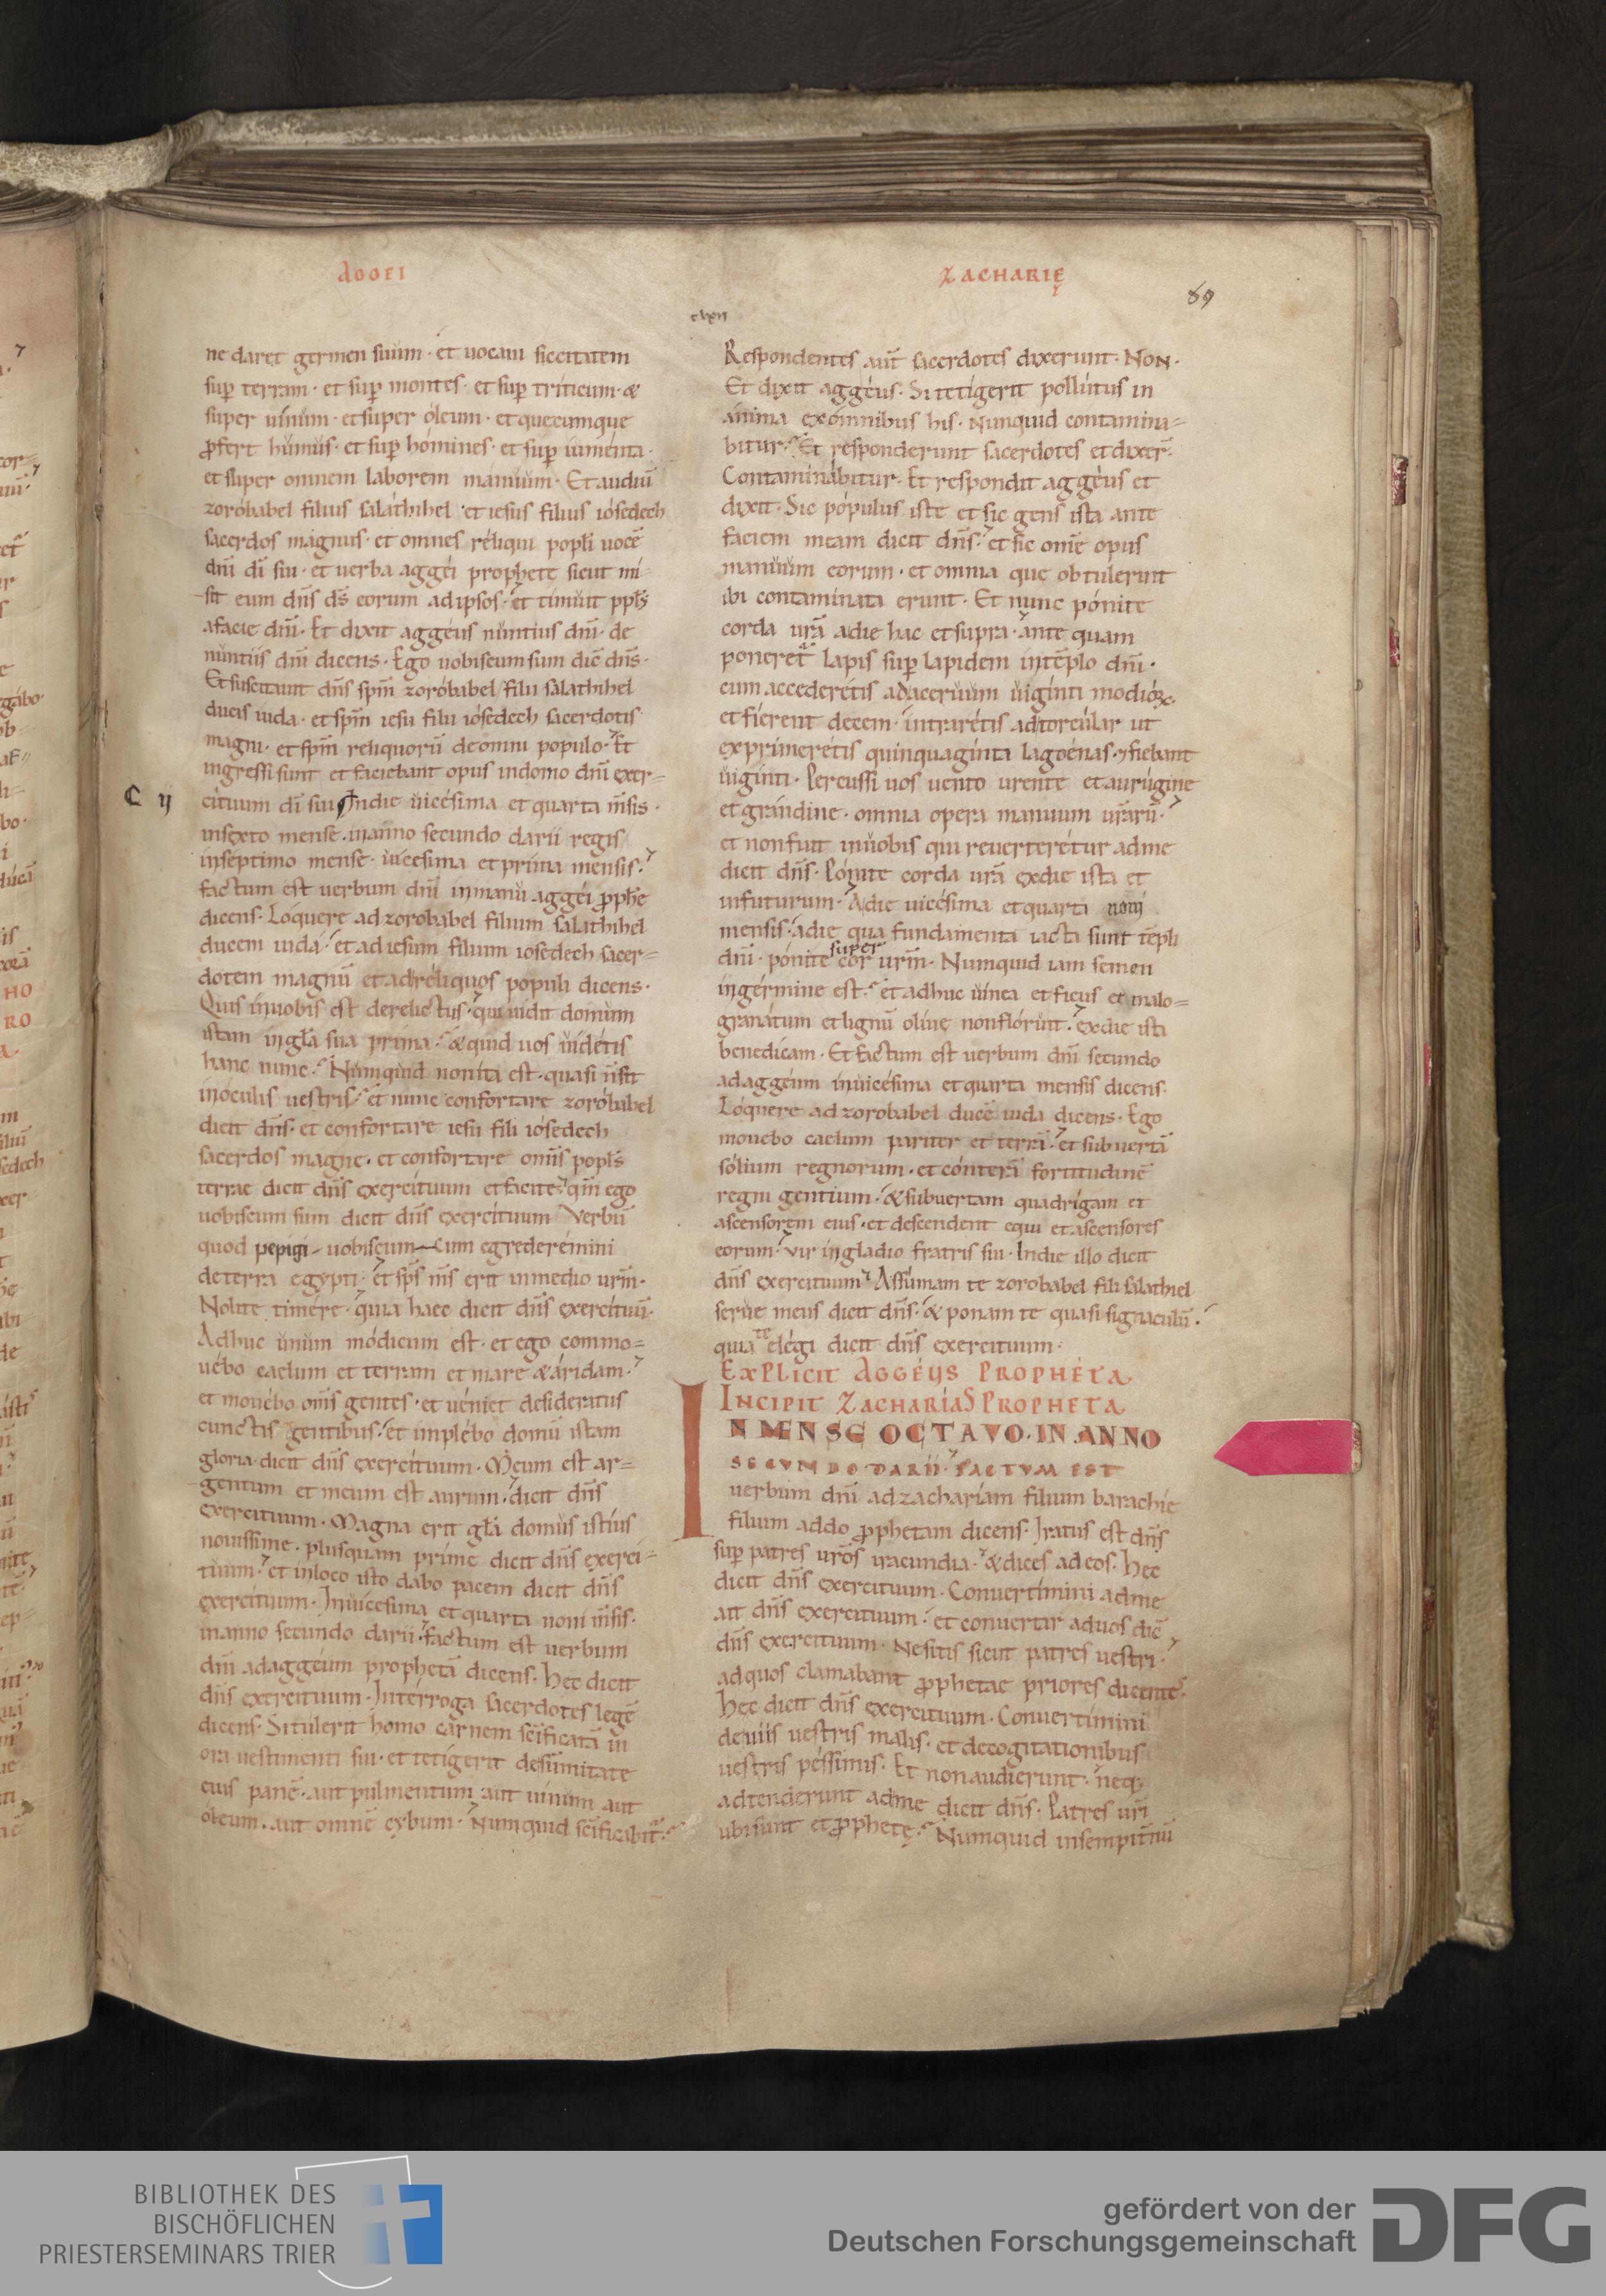 AGGEI
ZACHARIĘ
89
clxii
ne daret germen suum · et uocaui siccitatem
sup̱ terram · et sup̱ montes · et sup̱ triticum · &
super uinum · et super óleum · et quecumque
ꝓfert húmus · et sup̱ hómines · et sup̱ iuménta ·
et super omnem laborem mánuum · Et audiuī
zoróbabel filius saláthihel · et iesus filius iósedech
sacerdos magnus · et omnes réliqui popl̄i uocē
dnī dī sui · et uerba aggéi prophete sicut mi-
sit eum dn̄s ds̄ eorum ad ipsos · et timuit ppl̄s
a facie dnī · Et dixit aggéus núntius dnī · de
núntiis dnī dicens · Ego uobiscum sum dic̄ dn̄s ·
Et suscitauit dn̄s spm̄ zoróbabel filii salathihel
ducis iuda · et spm̄ iesu filii iósedech sacerdotis
magni · et spm̄ reliquorū de omni populo · Et
ingressi sunt et faciebant opus in domo dnī exer-
C ij
cituum dī sui In die uicésima et quarta m̄sis ·
in sexto mense · in anno secundo darii regis
in séptimo mense · uicesima et prima mensis ·
factum est uerbum dnī in manu aggéi ꝓph̄e
dicens · Lóquere ad zorobabel filium salathihel
ducem iuda · et ad iesum filium iosedech sacer-
dotem magnū et ad réliquos populi dicens ·
Quis in uobis est derelictus · qui uidit domum
istam in gl̄a sua prima · & quid uos uidétis
hanc nunc · Numquid non ita est · quasi n̄ sit
in óculis uestris · et nunc confortare zoróbabel
dicit dn̄s · et confortare iesu fili iósedech
sacerdos magne · et confortare om̄is popl̄s
terrae dicit dn̄s exercituum et facite · qm̄ ego
uobiscum sum dicit dn̄s exercituum Verbū
quod pepigi uobiscum cum egrederémini
de terra egypti · et sps̄ m̄s erit in medio urm̄ ·
Nolite timére · quia haec dicit dn̄s exercituū ·
Adhuc unum módicum est · et ego commo-
uébo caelum et terram et mare & áridam ·
et mouébo om̄s gentes · et uéniet desideratus
cunctis gentibus · et implébo domū istam
gloria · dicit dn̄s exercituum · Meum est ar-
gentum et meum est aurum · dicit dn̄s
exercituum · Magna erit gl̄a domus istíus
nouissime · plusquam prime dicit dn̄s exerci-
tuum · et in loco isto dabo pacem dicit dn̄s
exercituum · In uicesima et quarta noni m̄sis ·
in anno secundo darii · factum est uerbum
dnī ad aggeum prophetā dicens · Hec dicit
dn̄s exercituum · Intérroga sacerdotes legē
dicens · Si tulerit homo carnem sc̄ificatā in
ora uestimenti sui · et tetigerit de sūmitate
eius panē · aut pulmentum aut uinum aut
óleum · aut omnē cybum · Numquid sc̄ificabit̄ ·
Respondentes aut̄ sacerdotes dixerunt · NON ·
Et dixit aggéus · Si tetígerit pollútus in
ánima ex ómnibus his · Nunquid contamina-
bitur · Et responderunt sacerdotes et dixer̄ ·
Contaminábitur · Et respondit aggéus et
dixit · Sic pópulus iste et sic gens ista ante
faciem meam dicit dn̄s · et sic om̄e opus
manuum eorum · et omnia que obtulerint
ibi contaminata erunt · Et nunc pónite
corda urā a die hac et supra · ante quam
poneret̄ lapis sup̱ lapidem in tēplo dnī ·
cum accederétis ad aceruum uigínti modiórꝝ
et fíerent decem · intrarétis ad torcúlar ut
exprimerétis quinquaginta lagoénas · ⁊ fiebant
uigínti · Percussi uos uento urente et aurúgine
et grándine · omnia opera manuum urārū ·
et non fuit in uobis qui reuerterétur ad me
dicit dn̄s · Pónite corda urā ex die ista et
in futurum · A die uicésima et quarti noni
mensis · a die qua fundamenta iacta sunt tēpli
dnī · pónite super cor urm̄ · Numquid iam semen
in gérmine est · et adhuc uinea et ficus et malo-
granátum et lignū oliue non flóruit · ex die ista
benedicam · Et factum est uerbum dnī secundo
ad aggéum in uicésima et quarta mensis dicens ·
Lóquere ad zorobabel ducē iuda dicens · Ego
mouebo caelum pariter et terrā · et subuertā
sólium regnorum · et cónterā fortitudinē
regni gentium · & subuertam quadrígam et
ascensorem eius · et descendent equi et ascensores
eorum · vir in gladio fratris sui · In die illo dicit
dn̄s exercituum · Assúmam te zorobabel fili salathiel
serue meus dicit dn̄s · & ponam te quasi signaculū ·
quia te elégi dicit dn̄s exercituum ·
EXPLICIT AGGÉUS PROPHÉTA
INCIPIT ZACHARIAS PROPHETA
IN MENSE OCTAVO · IN ANNO
SECUNDO · DARII · FACTUM EST
uerbum dnī ad zachariam filium barachie
filium addo ꝓphetam dicens · Iratus est dn̄s
sup̱ patres urōs iracundia · & dices ad eos · Hec
dicit dn̄s exercituum · Conuertimini ad me
ait dn̄s exercituum · et conuertar ad uos dic̄
dn̄s exercituum · Ne sitis sicut patres uestri ·
ad quos clamabant ꝓphetae priores dicente͛ ·
Hec dicit dn̄s exercituum · Conuertímini
de uiis uestris malis · et de cogitationibus
uestris péssimis · Et non audierunt · neq;
adtenderunt ad me dicit dn̄s · Patres urī
ubi sunt et ꝓphetę · Numquid in sempit̄nū
BIBLIOTHEK DES
BISCHÖFLICHEN
PRIESTERSEMINARS TRIER
gefördert von der
Deutschen Forschungsgemeinschaft
DFG